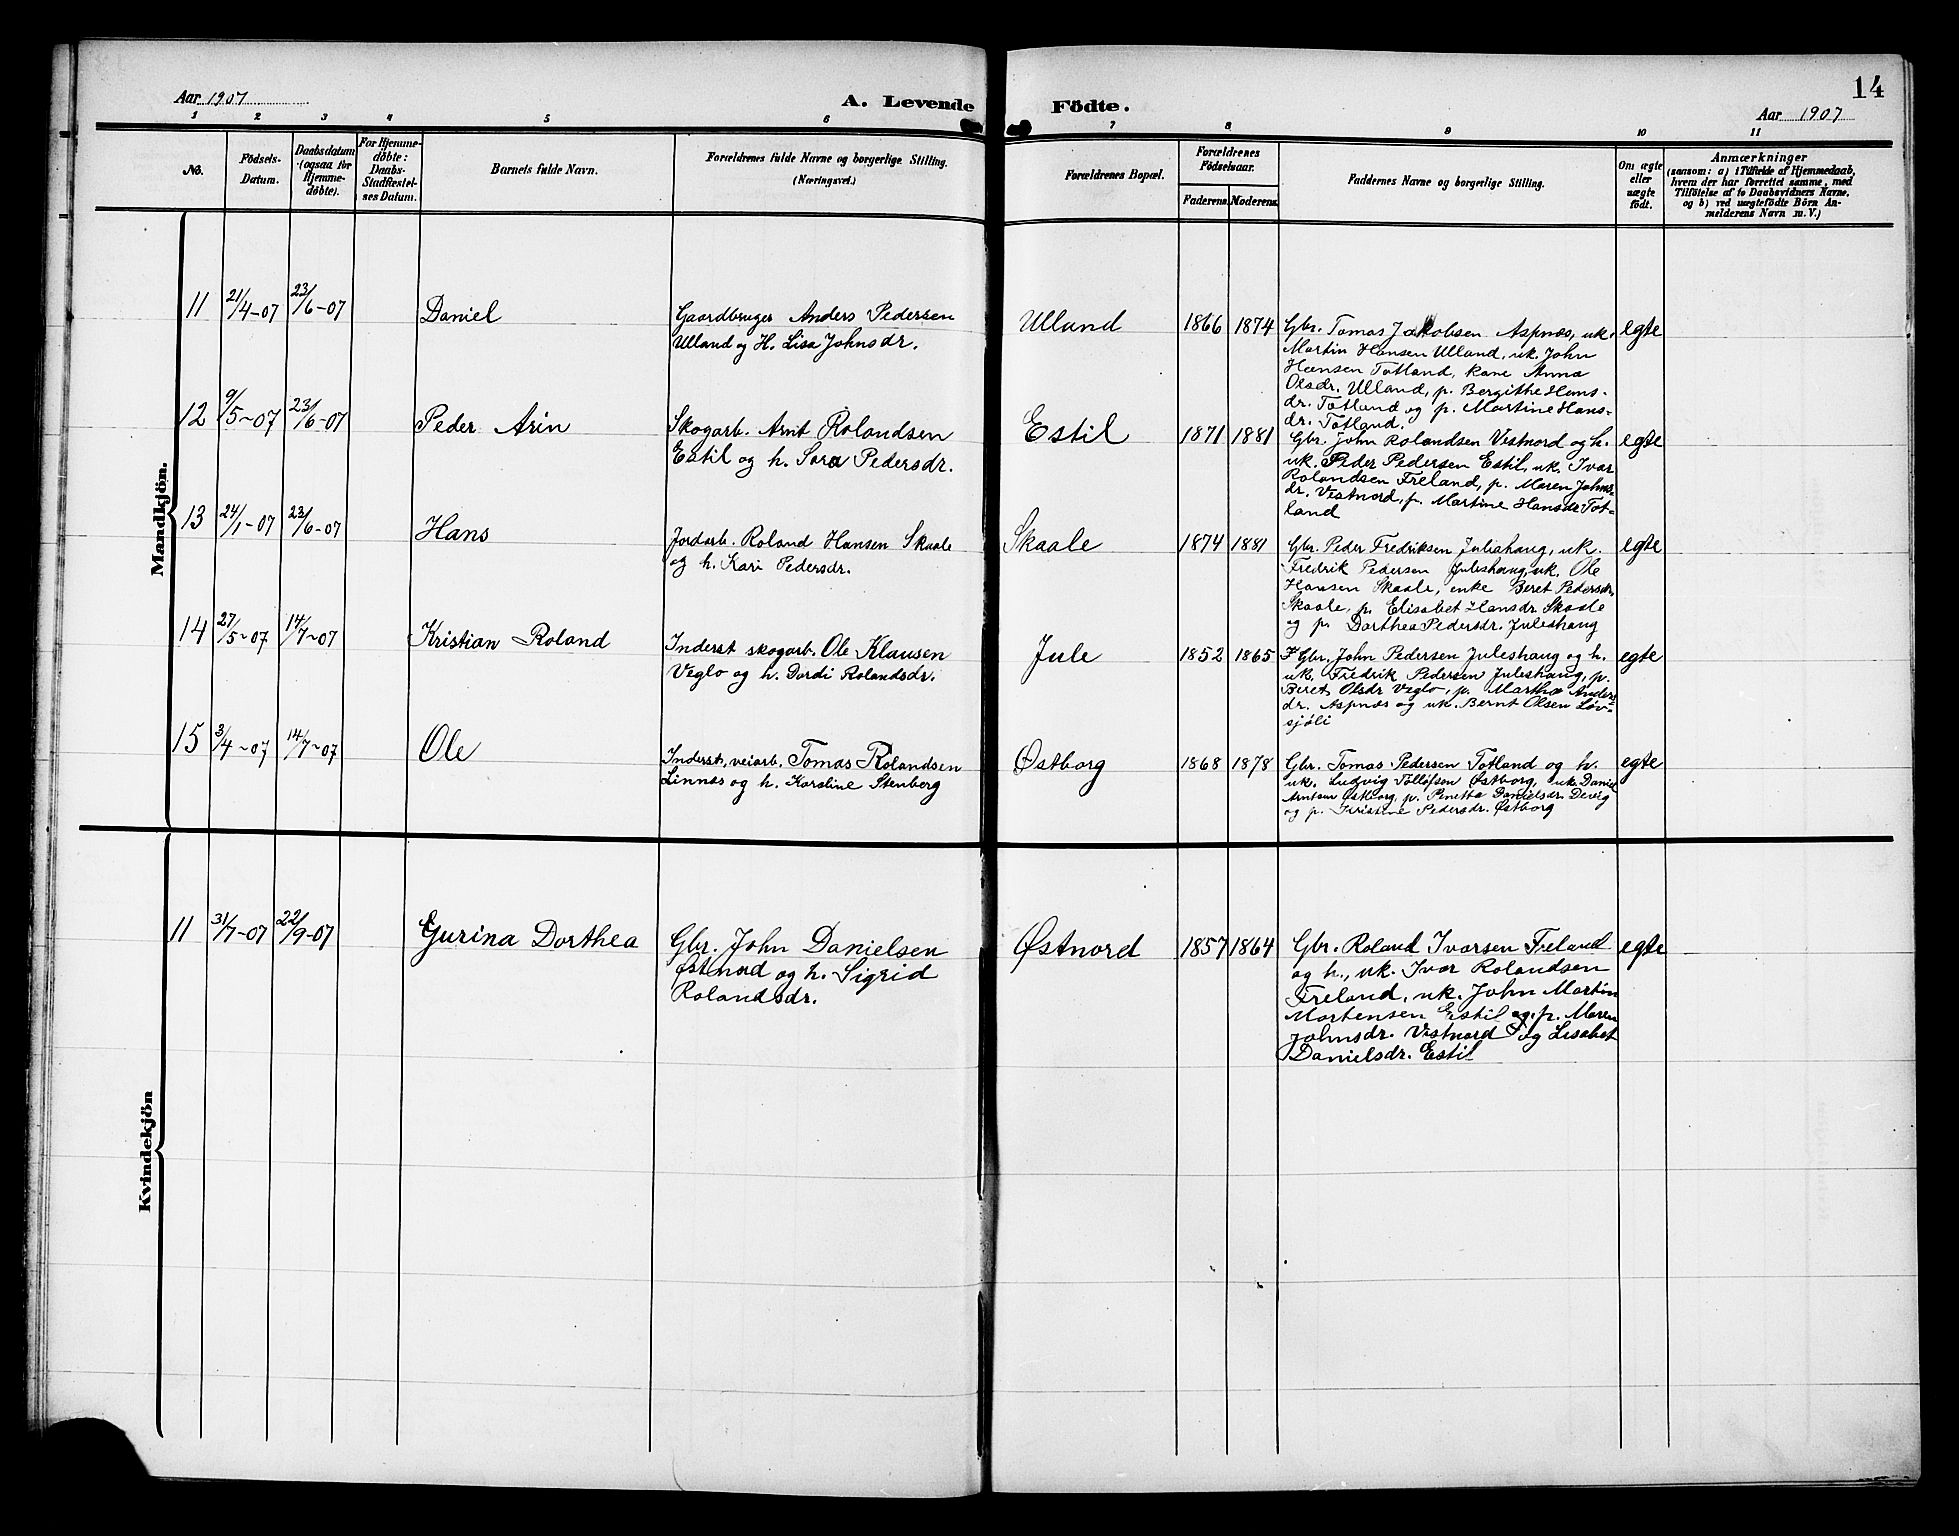 14
Aar 1907
A. Levende Födte.
Aar 1907
1 2 3 4 5 6 7 8 9 10 11
No.
Födsels-
Datum.
Daabsdatum
(ogsaa for
Hjemme-
döbte).
For Hjemme-
döbte:
Daabs-
Stadfæstel-
ses Datum.
Barnets fulde Navn.
Forældrenes fulde Navne og borgerlige Stilling.
(Næringsvei.)
Forældrenes Bopæl.
Forældrenes
Födselsaar.
Faderens. Moderens.
Faddernes Navne og borgerlige Stilling.
Om ægte
eller
uægte
födt.
Anmærkninger
(saasom: a) i Tilfælde af Hjemmedaab,
hvem der har forrettet samme, med
Tilföielse af to Daabsvidners Navne,
og b) ved uægtefödte Börn An-
melderens Navn m. V.)
Mandkjön.
11 21/4-07 23/6-07 Daniel
Gaardbruger Anders Pedersen
Ulland og H. Lisa Johnsdr.
Ulland 1866 1874
Gbr. Tomas Jakobsen Aspnæs, uk.
Martin Hansen Ulland, uk. John
Hansen Totland, kone Anna
Olsdr. Ulland, p. Bergithe Hans-
dr. Totland og p. Martine Hans-
dr. Totland.
egte
12 9/5-07 23/6-07 Peder Arin
Skogarb. Arnt Rolandsen
Estil og h. Sara Pedersdr.
Estil 1871 1881
Gbr. John Rolandsen Vestnord og h.
uk. Peder Pedersen Estil, uk. Ivar
Rolandsen Freland, p. Maren Johns-
dr. Vestnord, p. Martine Hansdr Tot-
land
egte
13 24/1-07 23/6-07 Hans
Jordarb. Roland Hansen Skaale
og h. Kari Pedersdr.
Skaale 1874 1881
Gbr. Peder Fredriksen Juleshaug, uk.
Fredrik Pedersen Juleshaug, uk. Ole
Hansen Skaale, enke Beret Pedersdr.
Skaale, p. Elisabet Hansdr Skaale
og p. Dorthea Pedersdr. Juleshaug
egte
14 27/5-07 14/7-07 Kristian Roland
Inderst skogarb. Ole Klausen
Veglo og h. Dordi Rolandsdr.
Jule 1852 1865
Gbr. John Pedersen Juleshaug og h.
uk. Fredrik Pedersen Juleshaug, p.
Beret Olsdr Veglo, p. Martha Anders-
dr. Aspnæs og uk. Bernt Olsen Løv-
sjøli
egte
15 3/4-07 14/7-07 Ole
Inderst, veiarb. Tomas Rolandsen
Linnæs og h. Karoline Stenberg
Østborg 1868 1878
Gbr. Tomas Pedersen Totland og h.
uk. Ludvig Tollofsen Østborg, uk. Daniel
Arntsen Østborg, p. Penetta Danielsdr. Devig
og p. Kristine Pedersdr. Østborg
egte
Kvindekjön
11 31/7-07 22/9-07 Gurina Dorthea
Gbr. John Danielsen
Østnord og h. Sigrid
Rolandsdr.
Østnord 1857 1864
Gbr. Roland Ivarsen Freland
og h., uk. Ivar Rolandsen
Freland, uk. John Martin
Mortensen Estil og p. Maren
Johnsdr. Vestnord og Lisabet
Danielsdr. Estil
egte